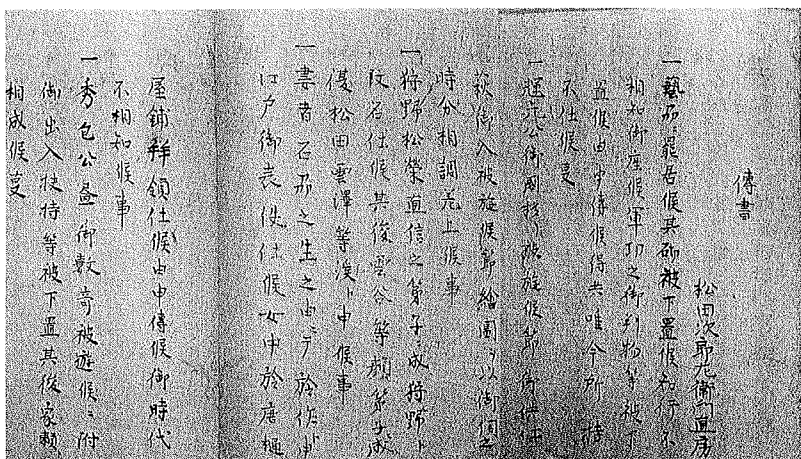 傳書
松田次郎左衛門直房
一藝州罷居候其砌被下置候知行不
相知御座候軍功之御判物等被下
置候由申傳候得共唯今所持
不仕候事
一輝元公御國替被遊候節御供仕
萩御入被遊候節繪圖を以御個之
時分相調差上候事
一狩野松榮直信之弟子成狩野
改名仕候其後雲谷等顔弟子成
優松田雲澤等 申候事
一妻者石州之生之由ニ 於
江戸御表使仕候女中於唐樋
屋鋪拜領仕候由申傳候御時代
不相知候事
一秀包公畫御數寄被遊候ニ付
御出入扶持等被下置其後家頼
相成候事